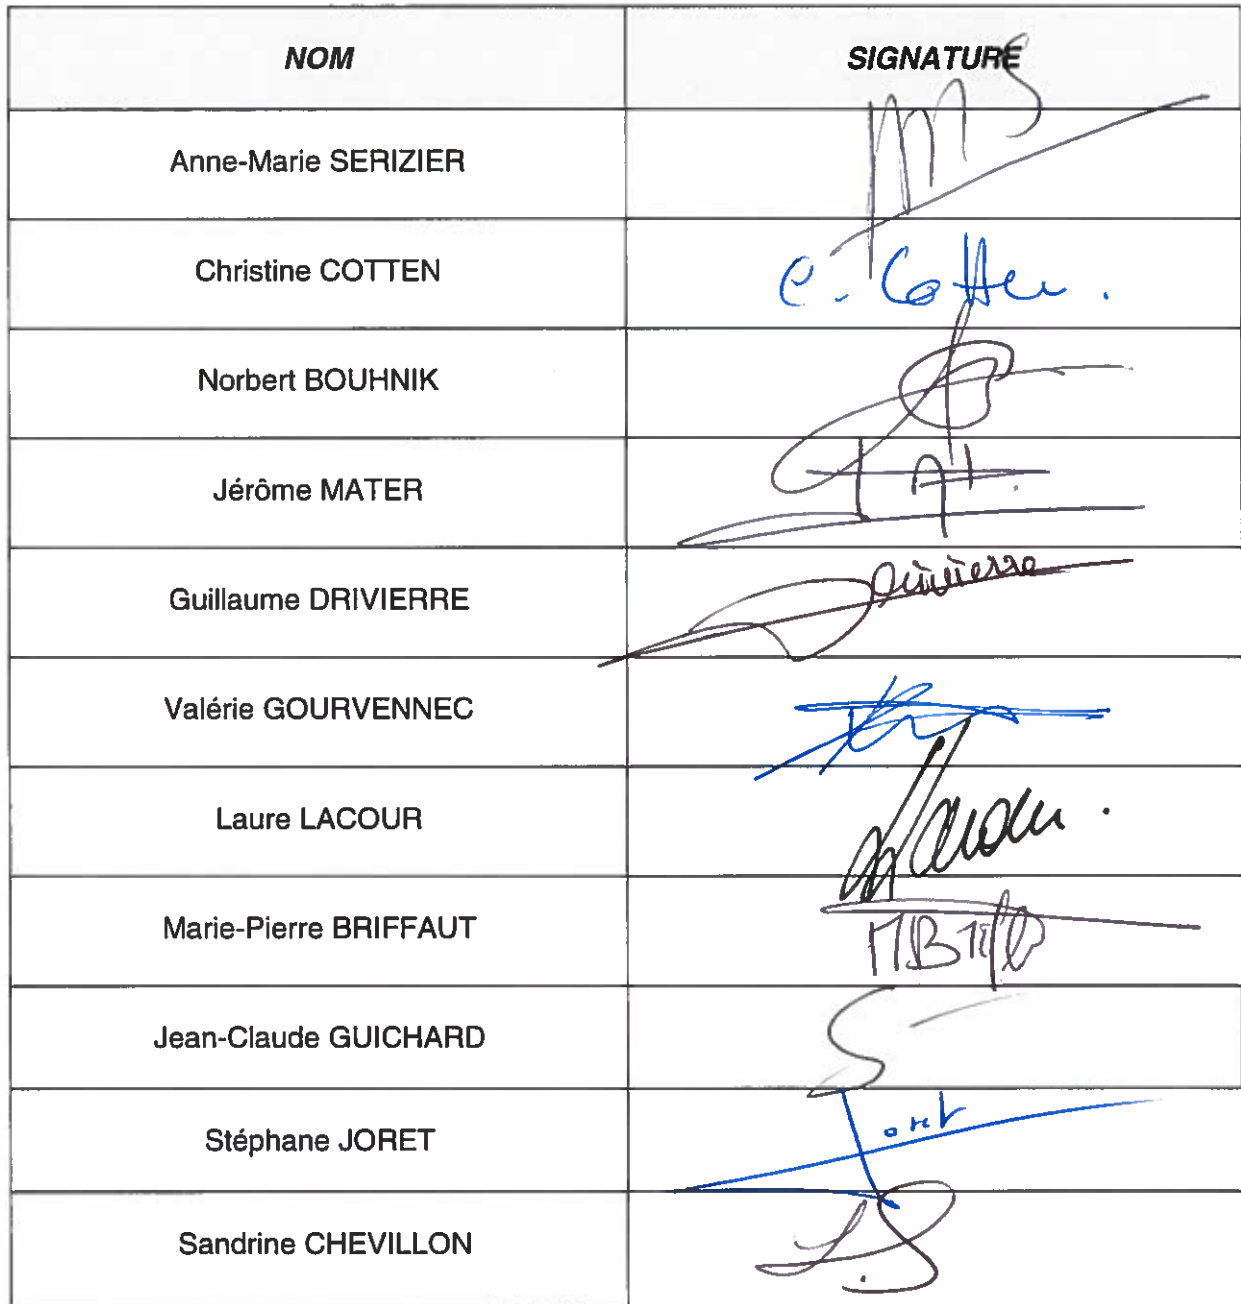 NOM SIGNATURE
Anne-Marie SERIZIER
Christine COTTEN C. Cotten.
Norbert BOUHNIK
Jérôme MATER
Guillaume DRIVIERRE Drivierre
Valérie GOURVENNEC
Laure LACOUR
Marie-Pierre BRIFFAUT
Jean-Claude GUICHARD
Stéphane JORET Joret
Sandrine CHEVILLON